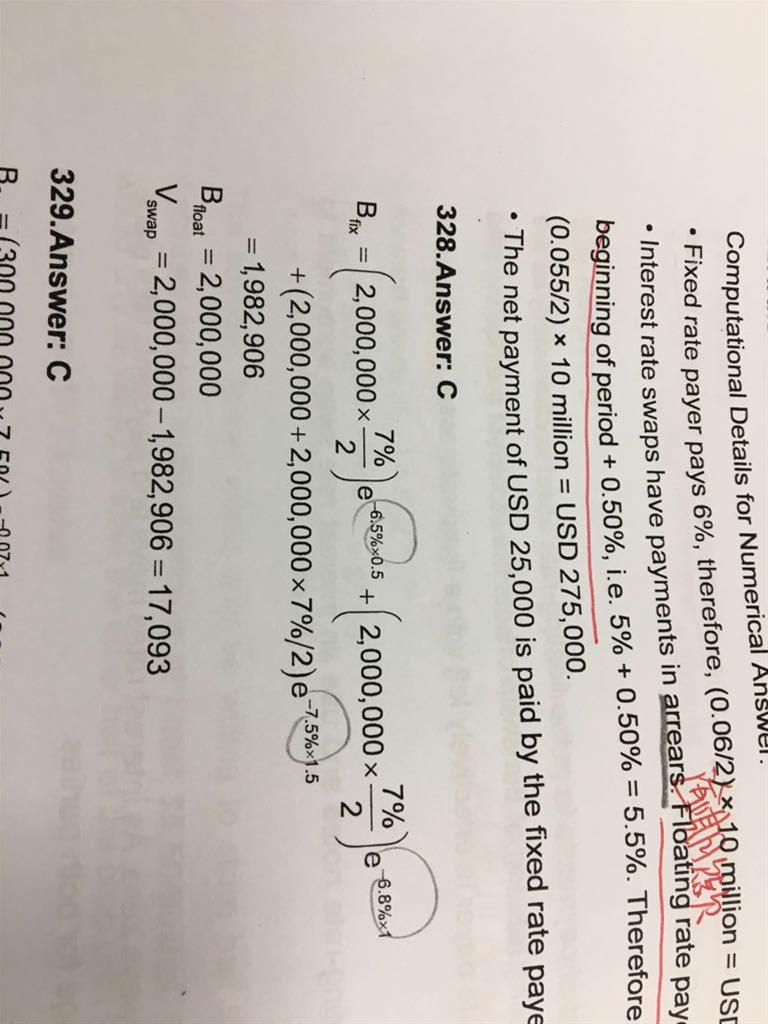 Computational Details for Numerical Answer:
• Fixed rate payer pays 6%, therefore, (0.06/2) × 10 million = USD
• Interest rate swaps have payments in arrears. Floating rate paye
beginning of period + 0.50%, i.e. 5% + 0.50% = 5.5%. Therefore
(0.055/2) × 10 million = USD 275,000.
• The net payment of USD 25,000 is paid by the fixed rate paye
328.Answer: C
B_fix = (2,000,000 × 7%/2)e^(-6.5%×0.5) + (2,000,000 × 7%/2)e^(-6.8%×1)
+(2,000,000 + 2,000,000 × 7%/2)e^(-7.5%×1.5)
= 1,982,906
B_float = 2,000,000
V_swap = 2,000,000 – 1,982,906 = 17,093
329.Answer: C
= (300,000,000 × 7.5%)